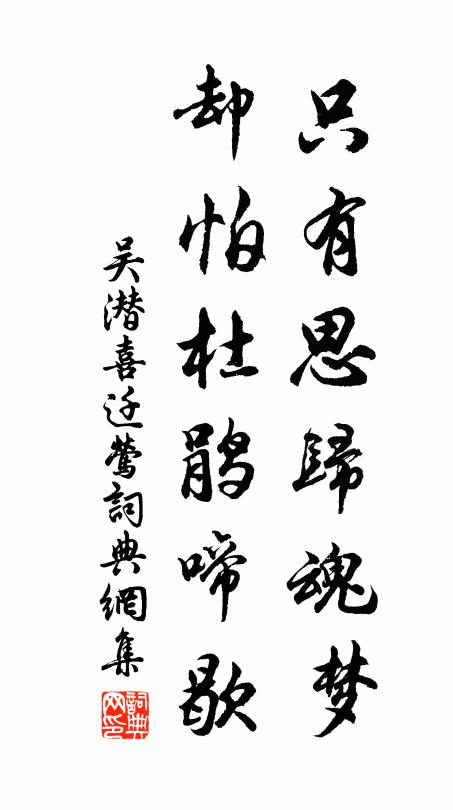 只有思歸魂梦
却怕杜鹃啼歇
吴潜喜迁莺詞典網集
詞典网印